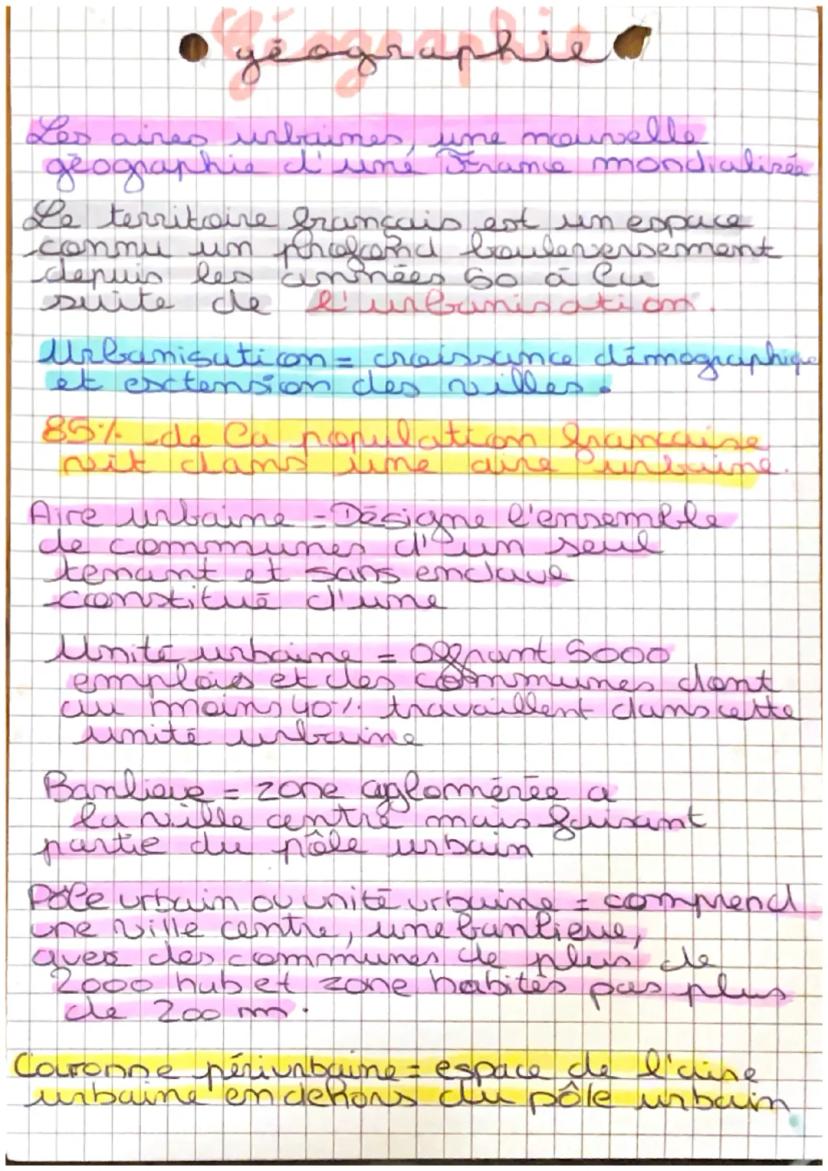 géographie
Les aires urbaines, une nouvelle
géographie d'une France mondialisée
Le territoire français est un espace
connu un profond bouleversement
depuis les années 60 à la
suite de l'urbanisation.
Urbanisation = croissance démographique
et extension des villes.
85% de la population française
vit dans une aire urbaine.
Aire urbaine = Désigne l'ensemble
de communes d'un seul
tenant et sans enclave
constitué d'une
Unité urbaine = Offrant 5000
emplois et des communes dont
au moins 40% travaillent dans cette
unité urbaine
Banlieue = zone agglomérée a
la ville centre mais faisant
partie du pôle urbain
Pôle urbain ou unité urbaine = comprend
une ville centre, une banlieue,
avec des communes de plus de
2000 hab et zone habités pas plus
de 200 m.
Couronne périurbaine = espace de l'aire
urbaine en dehors du pôle urbain